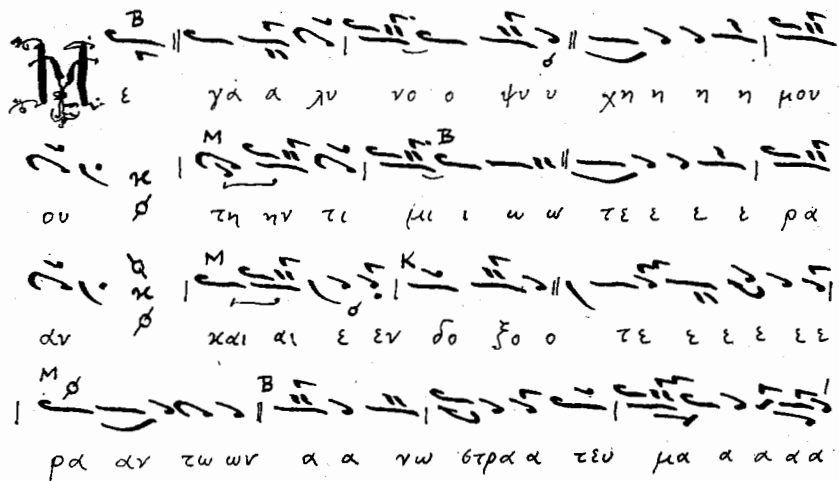 Β
Μ ε γά α λυ νο ο ψυ υ χη η η η μου
Μ Β
ου ϰ τη ην τι μι ι ω ω τε ε ε ε ρα
Μ Κ
αν ϰ και αι ε εν δο ξο ο τε ε ε ε ε ε
Μ Β
ρα αν τω ων α α νω στρα α τευ μα α α α α